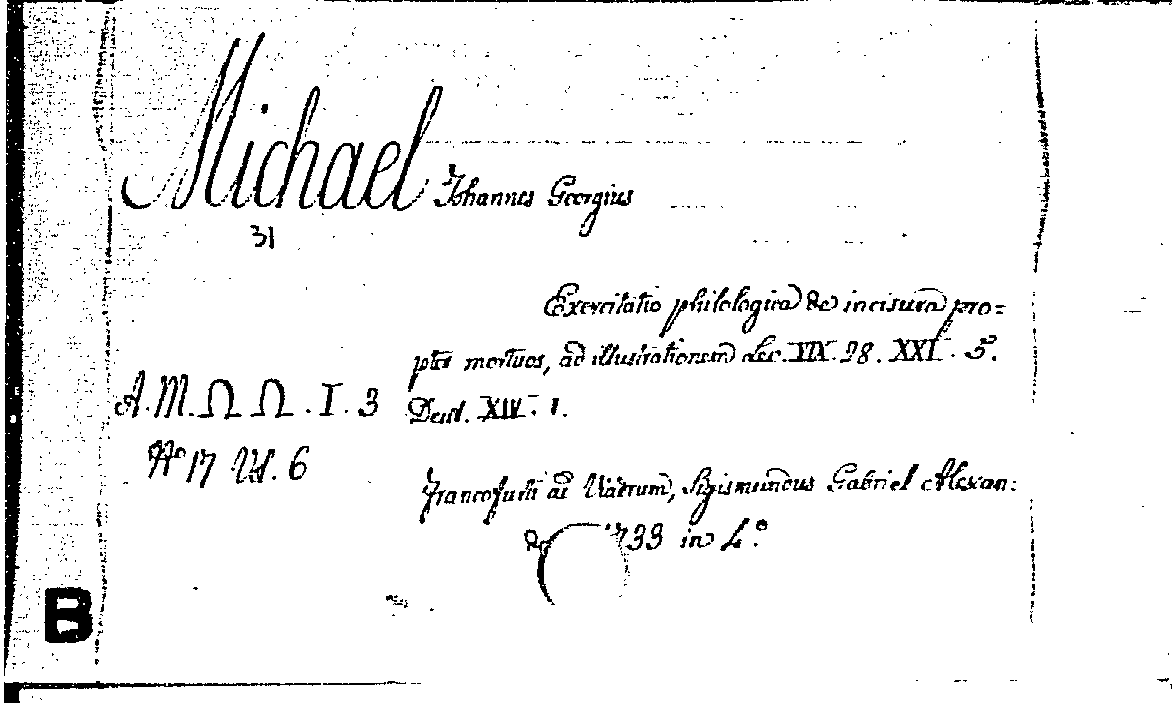 Michael Johannes Georgius
31
Exercitatio philologica de incisura pro=
pter mortuos, ad illustrationem Lev. XIX. 28. XXI. 5.
Deut. XIV. 1.
A. M. Ω Ω . I . 3
No 17 Vol. 6
Francofurti ad Viadrum, Sigismundus Gabriel Alexan:
de 1733 in 4.o
B